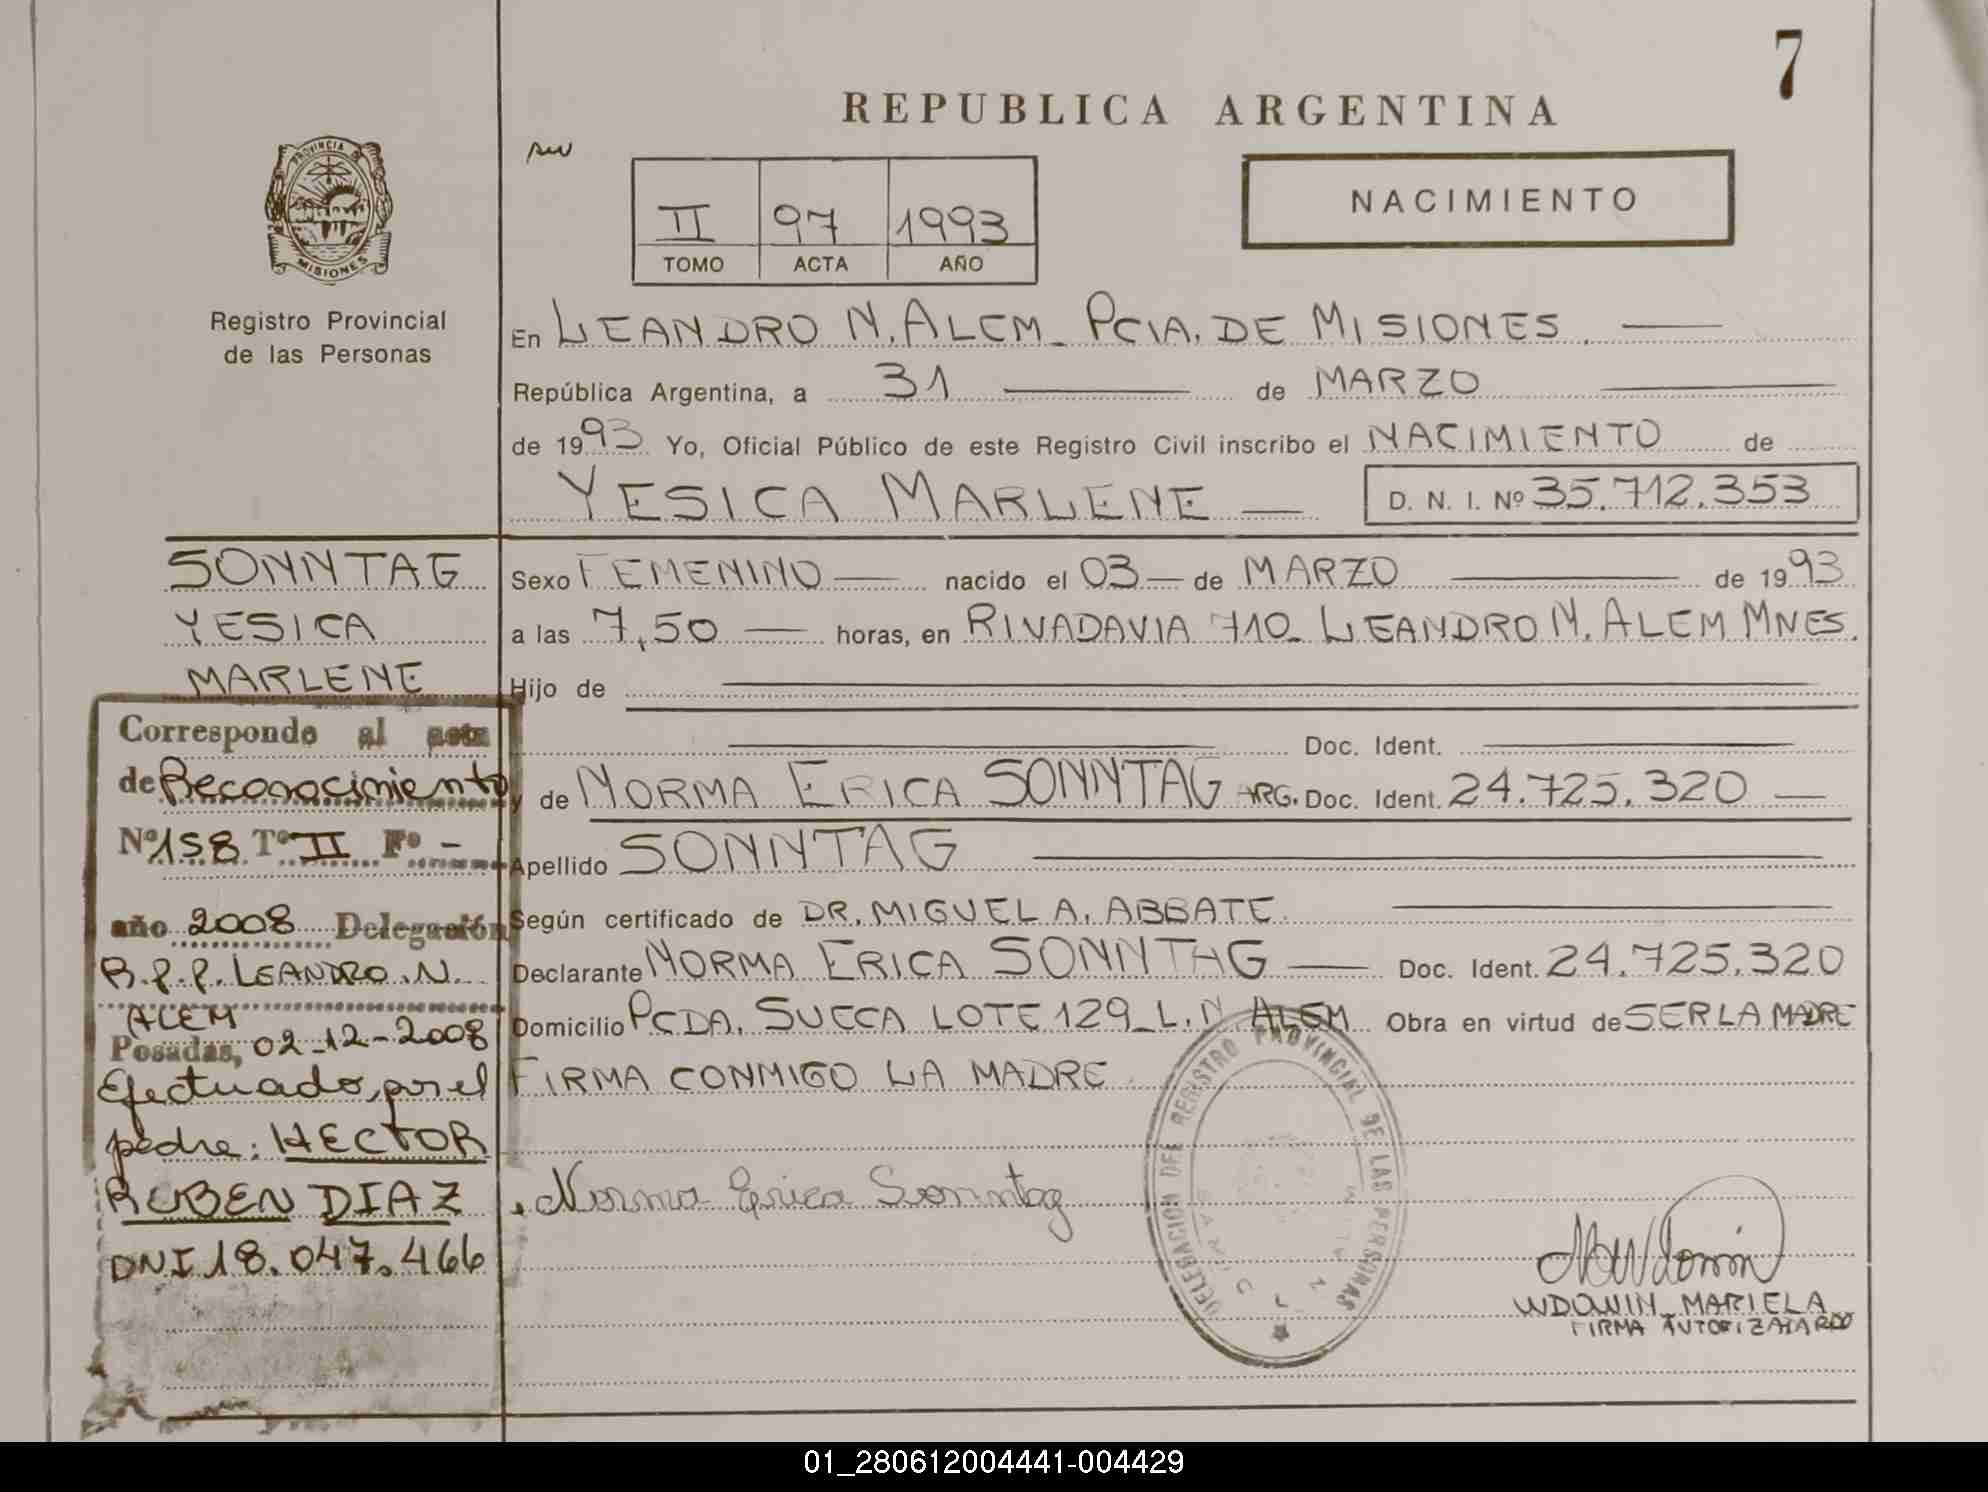 7
REPUBLICA ARGENTINA
NACIMIENTO
II 97 1993
TOMO ACTA AÑO
PROVINCIA DE
MISIONES
Registro Provincial
de las Personas
En LEANDRO N. ALEM_ PCIA. DE MISIONES.
República Argentina, a 31 de MARZO
de 1993 Yo, Oficial Público de este Registro Civil inscribo el NACIMIENTO de
YESICA MARLENE D. N. I. Nº 35.712.353
SONNTAG
YESICA
MARLENE
Sexo FEMENINO nacido el 03 de MARZO de 1993
a las 7,50 horas, en RIVADAVIA 710_ LEANDRO N. ALEM MNES.
Hijo de
Doc. Ident.
y de NORMA ERICA SONNTAG ARG. Doc. Ident. 24.725.320
Apellido SONNTAG
Según certificado de DR. MIGUEL A. ABBATE
Declarante NORMA ERICA SONNTAG Doc. Ident. 24.725.320
Domicilio PCDA. SUECA LOTE 129_ L.N. ALEM Obra en virtud de SER LA MADRE
FIRMA CONMIGO LA MADRE
Corresponde al acta
de Reconocimiento
Nº 158 Tº II Fº -
año 2008 Delegación
R.P.P. LEANDRO N.
ALEM
Posadas, 02-12-2008
Efectuado, por el
padre: HECTOR
RUBEN DIAZ
DNI 18.047.466
Norma Erica Sonntag
DELEGACION DEL REGISTRO PROVINCIAL DE LAS PERSONAS
WDOWIN_MARIELA
FIRMA AUTORIZADA RDO
01_280612004441-004429